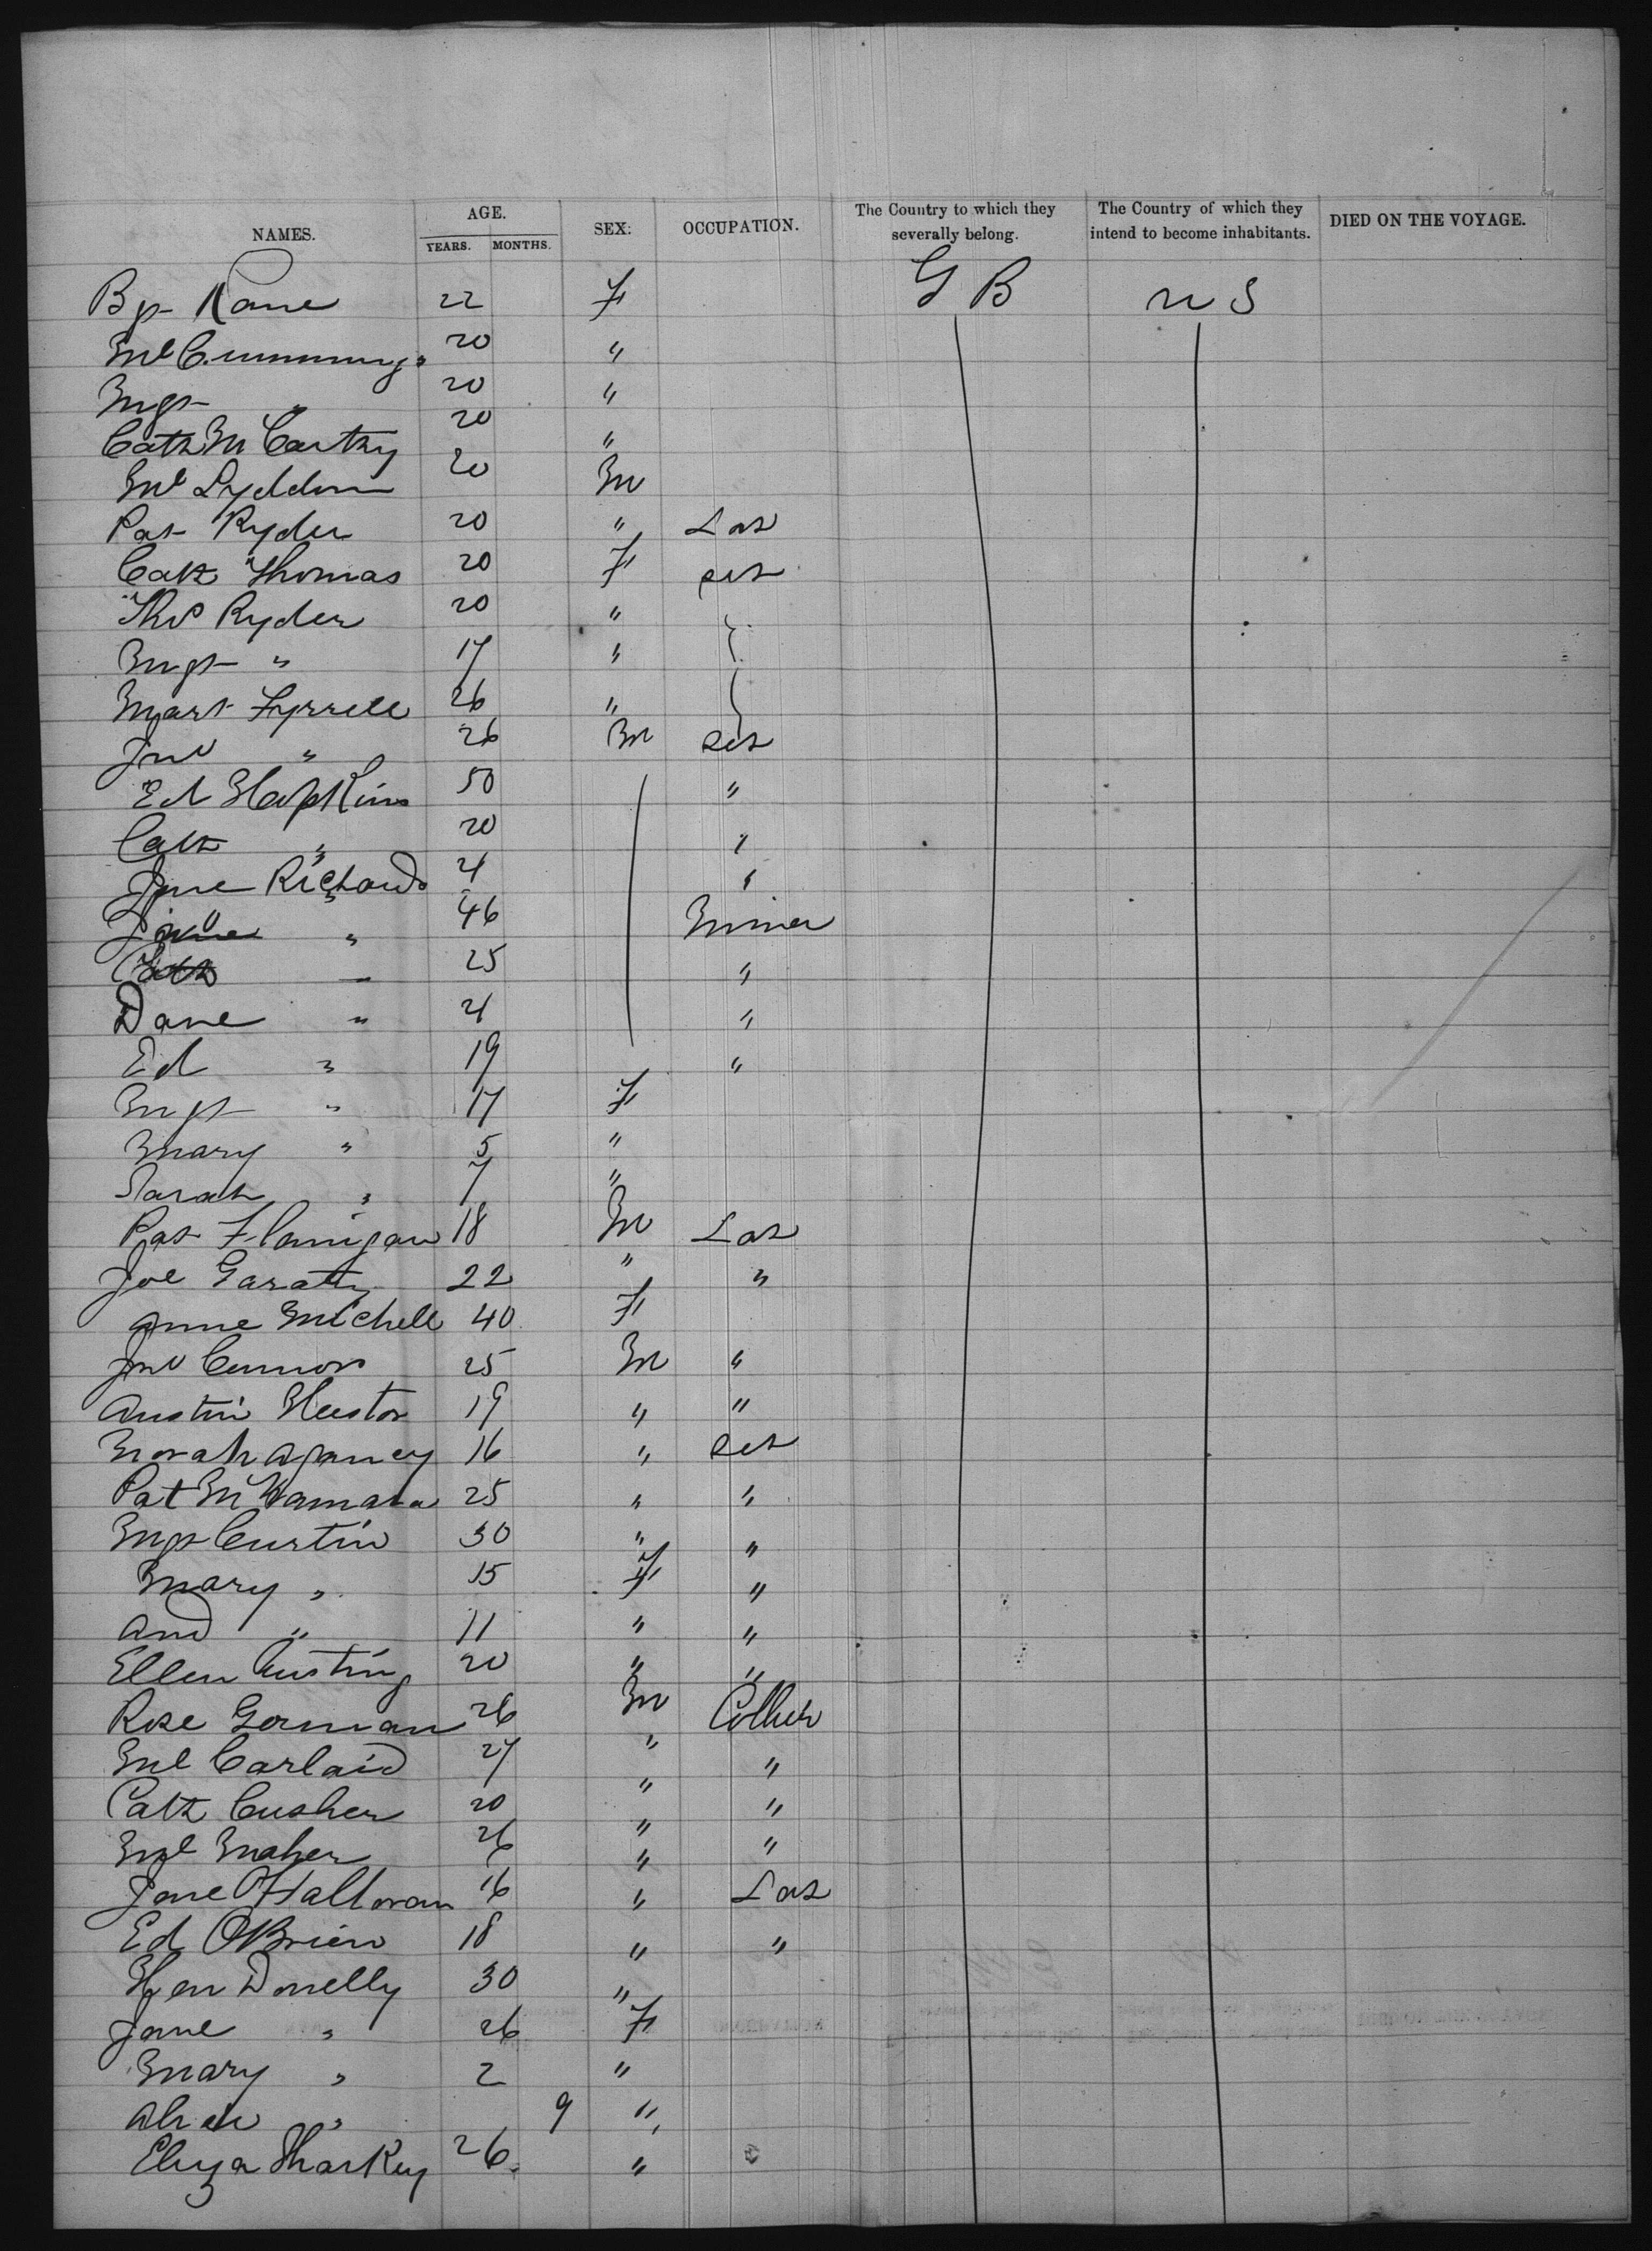 NAMES. AGE. YEARS. MONTHS. SEX: OCCUPATION. The Country to which they severally belong. The Country of which they intend to become inhabitants. DIED ON THE VOYAGE.
Kane 22 F G B U S
Ml Cummings 20 "
Mgt " 20 "
Cath McCarthy 20 "
Ml Lyddon 20 M
Pat Ryder 20 " Lab
Cath Thomas 20 F
Thos Ryder 20 "
Mgt " 17 "
Mart Tyrrell 26 "
Jno " 26 M
Ed Hopkins 50 "
Cath " 20 "
Jane Richards 21 "
" 46 Miner
25 "
Dane " 21 "
Ed " 19 "
Mgt " 17 F
Mary " 5 "
Sarah " 7 "
Pat Flanigan 18 M Lab
Joe Garatty 22 " "
Anne Michell 40 F
Jno Connors 25 M "
Austin Hester 19 " "
Norah 16 "
Pat McNamara 25 " "
Mgt Curtin 30 " "
Mary " 15 F "
And " 11 " "
Ellen 20 " "
Rose Gorman 26 M Collier
Ml 27 " "
Cath Cusher 20 " "
Ml Maher 26 " "
Jane OHalloran 16 " Lab
Ed OBrien 18 " "
Hen Donelly 30 "
Jane " 26 F
Mary " 2 "
" 9 "
Eliza Sharkey 26 "